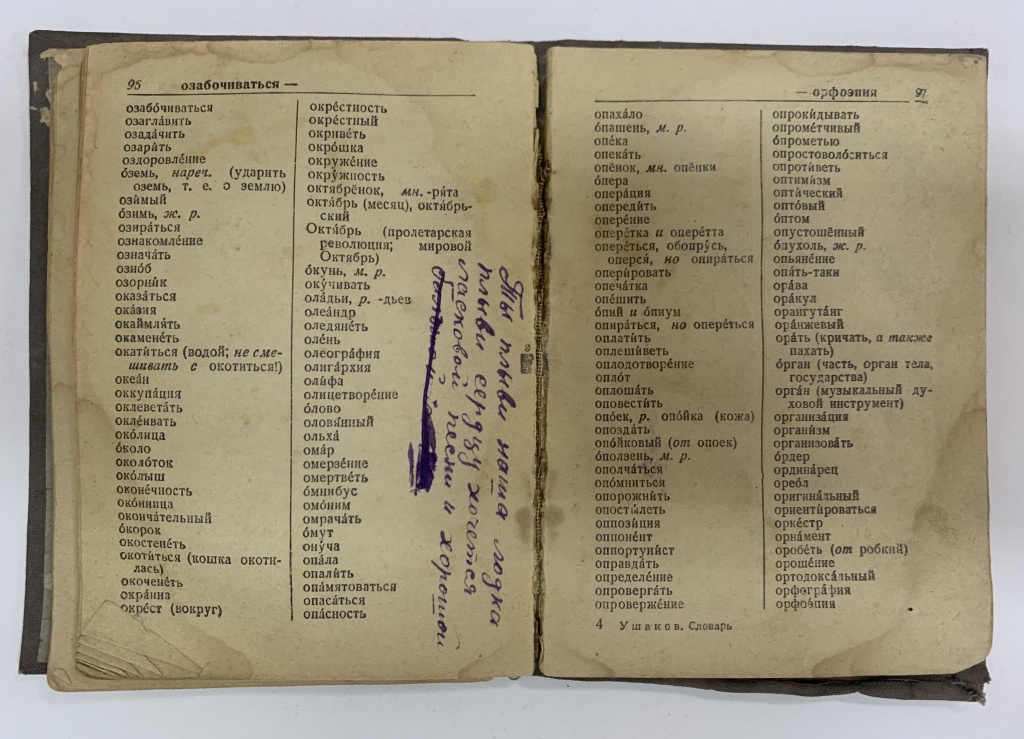 96 озабо́чиваться —
озабо́чиваться
озагла́вить
озада́чить
озари́ть
оздоровле́ние
о́земь, нареч. (ударить
оземь, т. е. о землю)
ози́мый
о́зимь, ж. р.
озира́ться
ознакомле́ние
означа́ть
озно́б
озорни́к
оказа́ться
ока́зия
окаймля́ть
окамене́ть
окати́ться (водой; не сме-
шивать с окотиться!)
океа́н
оккупа́ция
оклевета́ть
окле́ивать
око́лица
о́коло
около́ток
око́лыш
оконе́чность
око́нница
оконча́тельный
о́корок
окостене́ть
окоти́ться (кошка окоти-
лась)
окочене́ть
окра́ина
окре́ст (вокруг)
окре́стность
окре́стный
окриве́ть
окро́шка
окруже́ние
окру́жность
октябрёнок, мн. -ря́та
октя́брь (месяц), октя́брь-
ский
Октя́брь (пролетарская
революция; мировой
Октябрь)
о́кунь, м. р.
оку́чивать
ола́дьи, р. -дьев
олеа́ндр
оледене́ть
оле́нь
олеогра́фия
олига́рхия
оли́фа
олицетворе́ние
о́лово
оловя́нный
ольха́
ома́р
омерзе́ние
омертве́ть
о́мнибус
омо́ним
омрача́ть
о́мут
ону́ча
опа́ла
опали́ть
опа́мятоваться
опаса́ться
опа́сность
Ты плыви плыви наша лодка
плыви сердцу хочется
ласковой песни и хорошой
— орфоэпия 97
опаха́ло
о́пашень, м. р.
опе́ка
опека́ть
опёнок, мн. опёнки
о́пера
опера́ция
опереди́ть
опере́ние
опере́тка и опере́тта
опере́ться, обопру́сь,
опёрся, но опира́ться
опери́ровать
опеча́тка
опе́шить
о́пий и о́пиум
опира́ться, но опере́ться
оплати́ть
оплеши́веть
оплодотворе́ние
опло́т
оплоша́ть
оповести́ть
опо́ек, р. опо́йка (кожа)
опозда́ть
опо́йковый (от опоек)
о́ползень, м. р.
ополча́ться
опо́мниться
опорожни́ть
опосты́леть
оппози́ция
оппоне́нт
оппортуни́ст
оправда́ть
определе́ние
опроверга́ть
опроверже́ние
опроки́дывать
опроме́тчивый
о́прометью
опростоволо́ситься
опроти́веть
оптими́зм
опти́ческий
опто́вый
о́птом
опустошённый
о́пухоль, ж. р.
опьяне́ние
опя́ть-таки
ора́ва
ора́кул
орангута́нг
ора́нжевый
ора́ть (кричать, а также
пахать)
о́рган (часть, орган тела,
государства)
орга́н (музыкальный ду-
ховой инструмент)
организа́ция
органи́зм
организова́ть
о́рдер
ордина́рец
орео́л
оригина́льный
ориенти́роваться
орке́стр
орна́мент
оробе́ть (от робкий)
ороше́ние
ортодокса́льный
орфогра́фия
орфоэ́пия
4 Ушаков. Словарь